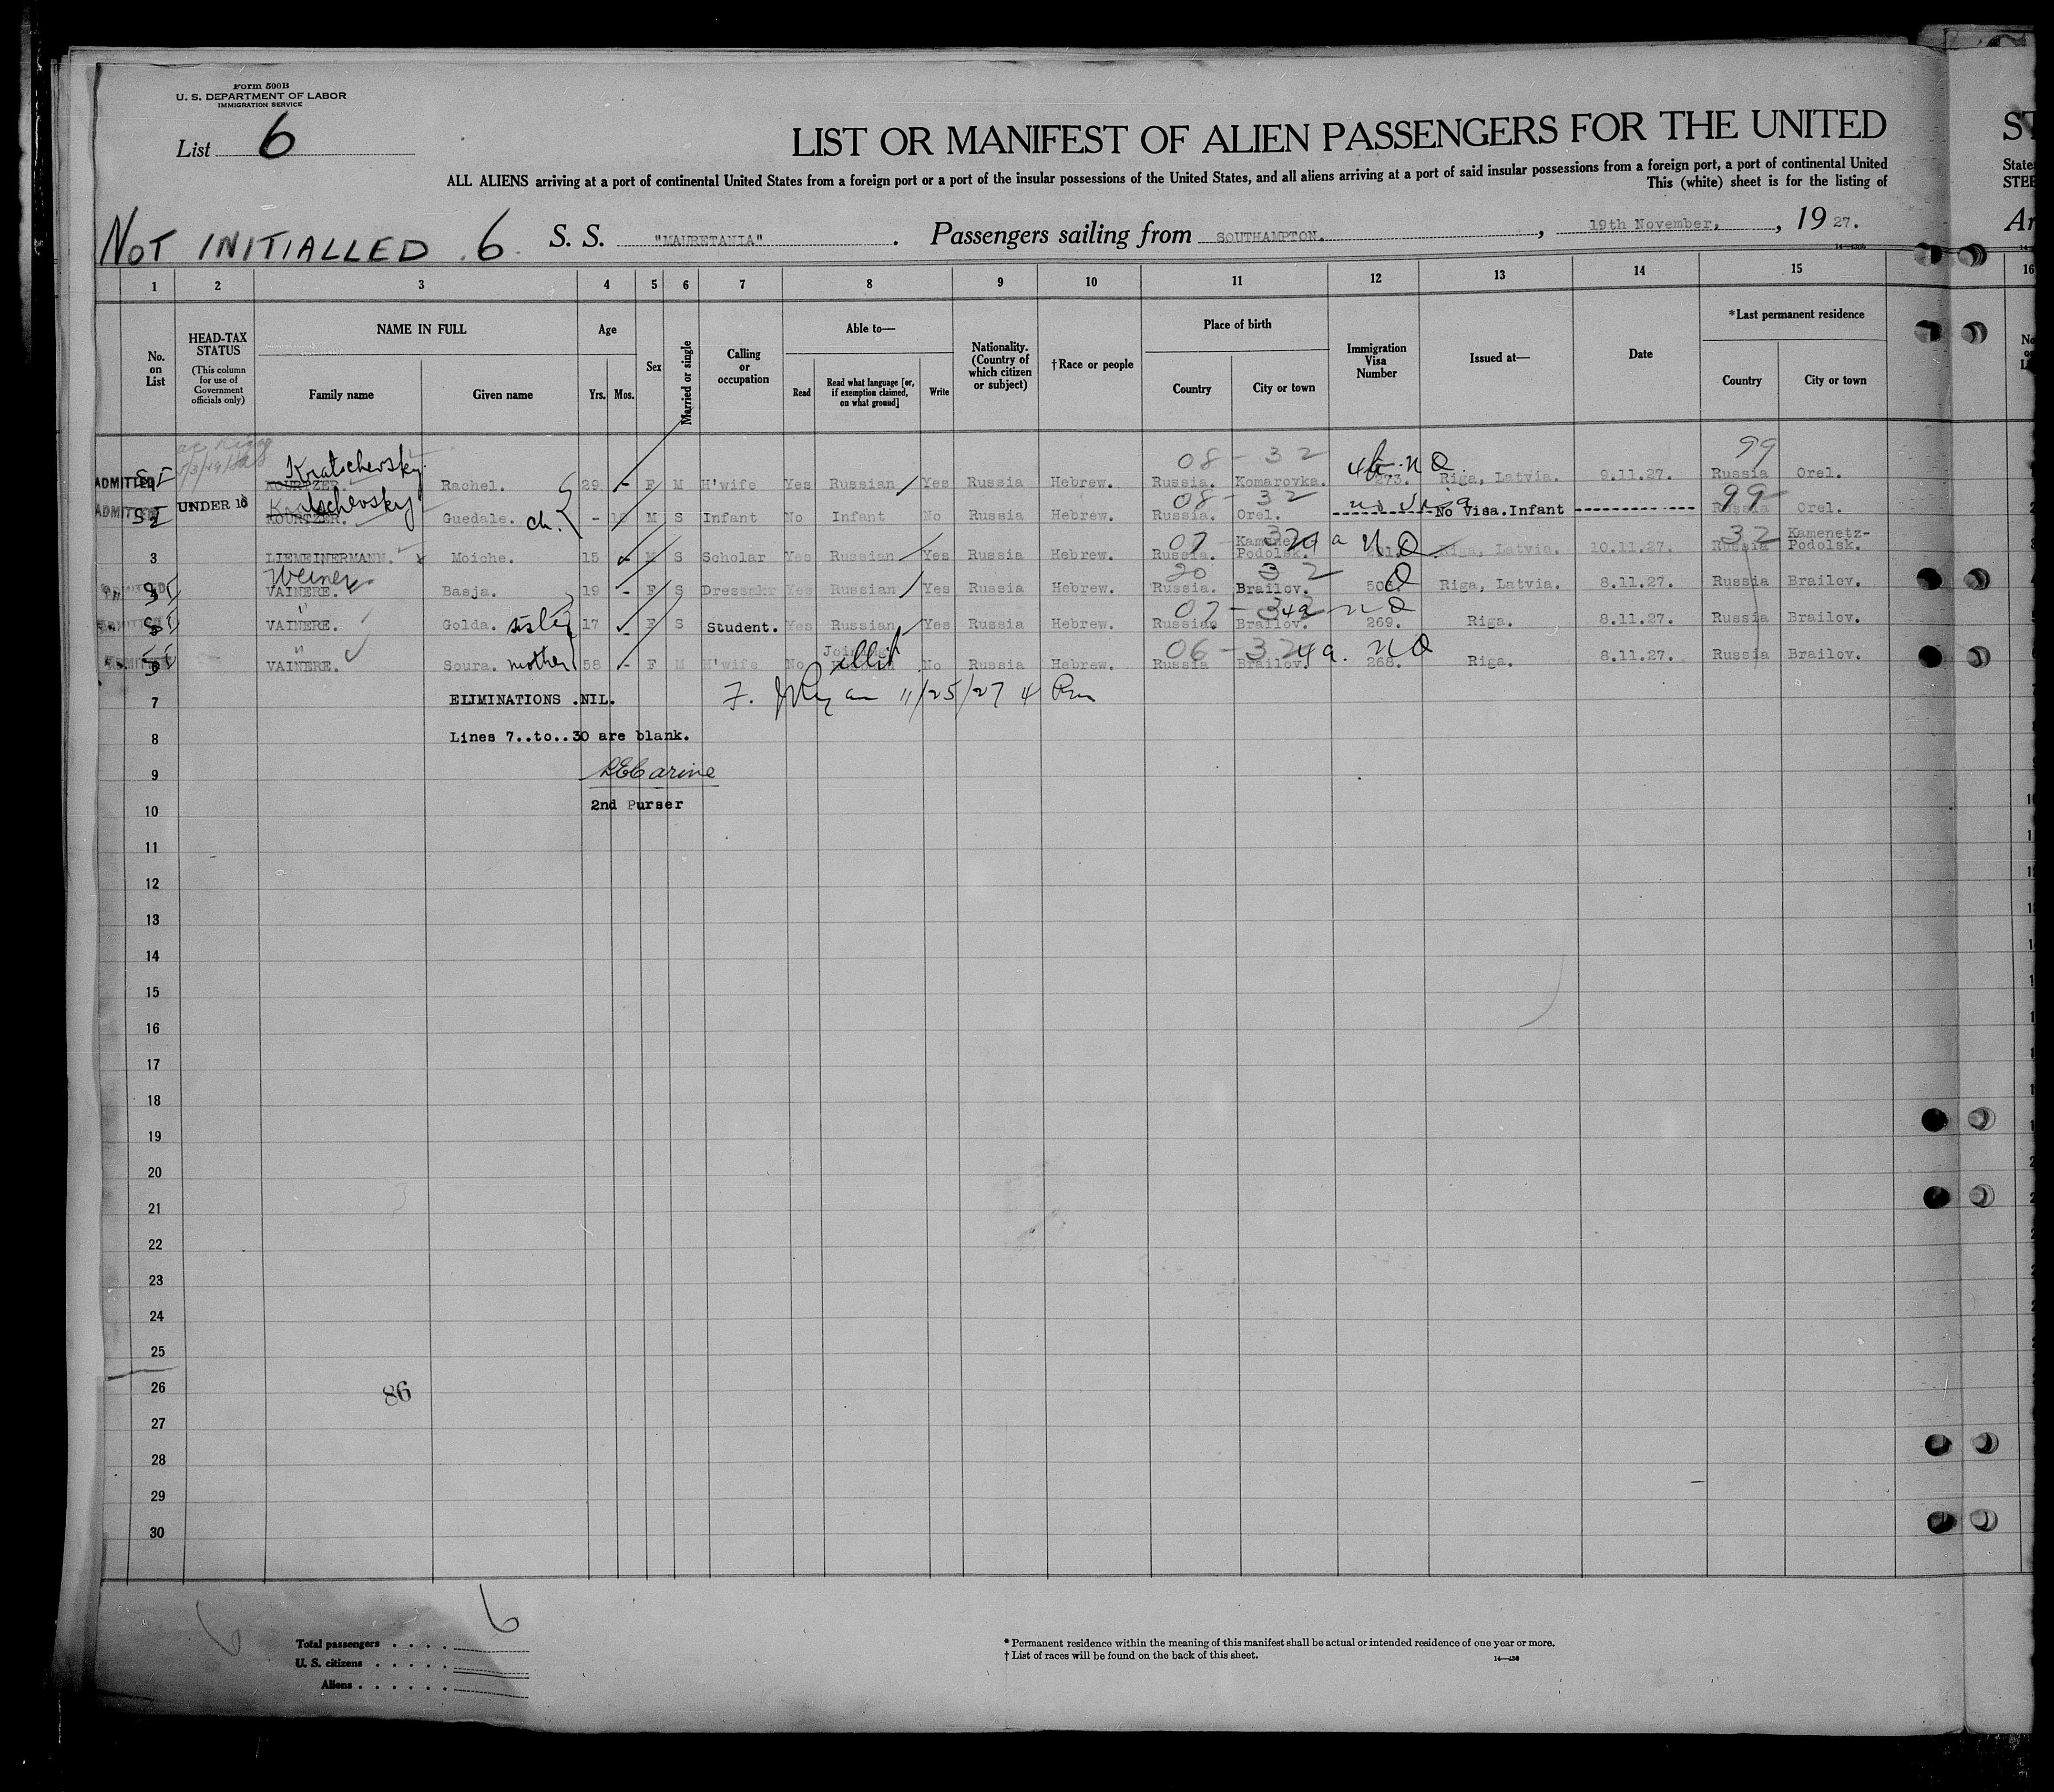 Form 500B
U. S. DEPARTMENT OF LABOR
IMMIGRATION SERVICE
List 6
LIST OR MANIFEST OF ALIEN PASSENGERS FOR THE UNITED
ST
ALL ALIENS arriving at a port of continental United States from a foreign port or a port of the insular possessions of the United States, and all aliens arriving at a port of said insular possessions from a foreign port, a port of continental United
State
This (white) sheet is for the listing of
STEE
NOT INITIALLED 6 S. S. "MAURETANIA" . Passengers sailing from SOUTHAMPTON. , 19th November, , 19 27.
Ar
1 2 3 4 5 6 7 8 9 10 11 12 13 14 15 16
No. on List
HEAD-TAX STATUS
(This column for use of Government officials only)
NAME IN FULL
Family name Given name
Age
Yrs. Mos.
Sex
Married or single
Calling or occupation
Able to—
Read
Read what language [or, if exemption claimed, on what ground]
Write
Nationality. (Country of which citizen or subject)
†Race or people
Place of birth
Country City or town
Immigration Visa Number
Issued at—
Date
*Last permanent residence
Country City or town
08 - 32 99
Kratschevsky
ADMITTED KOURTZER. Rachel. 29 - F M H'wife Yes Russian Yes Russia Hebrew. Russia. Komarovka. 273. Riga, Latvia. 9.11.27. Russia Orel.
Kratschevsky 08 - 32 no Visa 99
ADMITTED UNDER 16 KOURTZER. Guedale. ch. - M S Infant No Infant No Russia Hebrew. Russia. Orel. No Visa.Infant Russia Orel.
07 32
3 LIEMEINERMANN. Moiche. 15 - M S Scholar Yes Russian Yes Russia Hebrew. Russia. Kamenetz Podolsk. Riga, Latvia. 10.11.27. Russia Kamenetz-Podolsk.
Weiner 20 32
VAINERE. Basja. 19 - F S Dressmkr Yes Russian Yes Russia Hebrew. Russia. Brailov. Riga, Latvia. 8.11.27. Russia Brailov.
"
VAINERE. Golda. sister 17 - F S Student. Yes Russian Yes Russia Hebrew. Russia. Brailov. 269. Riga. 8.11.27. Russia Brailov.
"
VAINERE. Soura. mother 58 - F M H'wife No No Russia Hebrew. Russia Brailov. 268. Riga. 8.11.27. Russia Brailov.
7 ELIMINATIONS .NIL. 11/25/27
8 Lines 7..to..30 are blank.
9
10 2nd Purser
11
12
13
14
15
16
17
18
19
20
21
22
23
24
25
26 86
27
28
29
30
6 6
Total passengers . . . .
U. S. citizens . . . . .
Aliens . . . . . .
* Permanent residence within the meaning of this manifest shall be actual or intended residence of one year or more.
† List of races will be found on the back of this sheet.
14—430